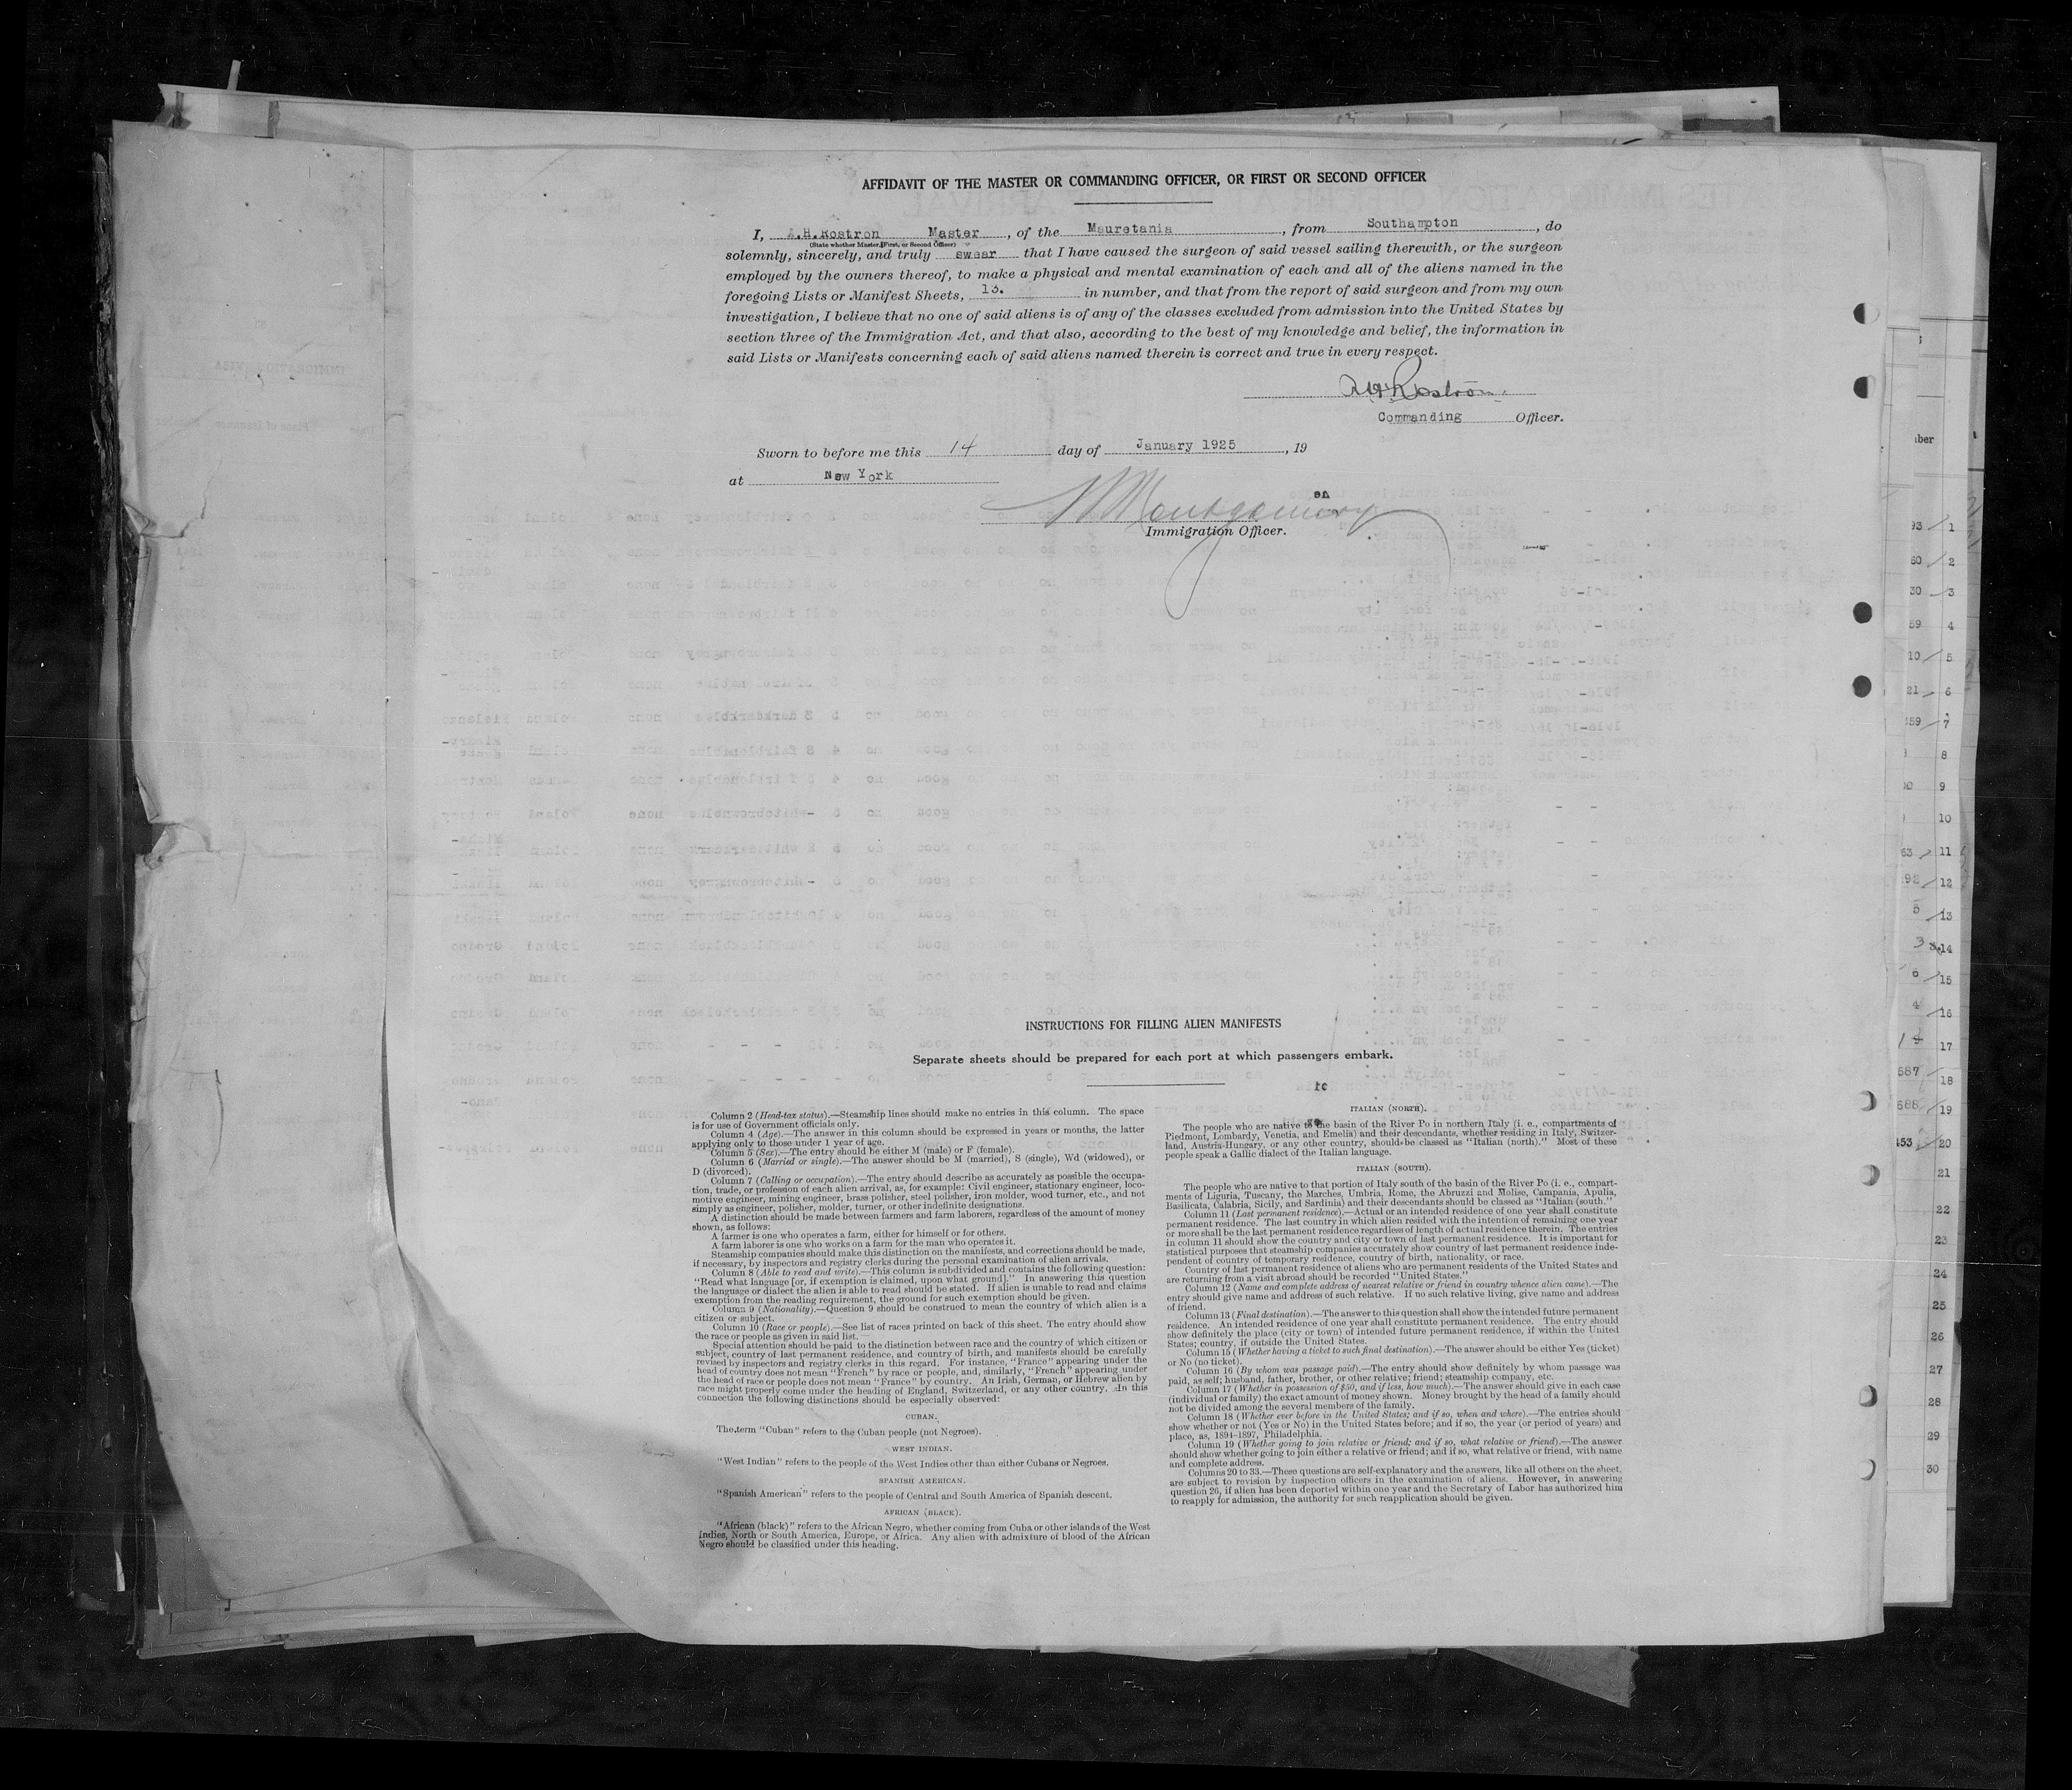 AFFIDAVIT OF THE MASTER OR COMMANDING OFFICER, OR FIRST OR SECOND OFFICER
I, A.H.Rostron Master, of the Mauretania, from Southampton, do
(State whether Master, First, or Second Officer)
solemnly, sincerely, and truly swear that I have caused the surgeon of said vessel sailing therewith, or the surgeon
employed by the owners thereof, to make a physical and mental examination of each and all of the aliens named in the
foregoing Lists or Manifest Sheets, 13. in number, and that from the report of said surgeon and from my own
investigation, I believe that no one of said aliens is of any of the classes excluded from admission into the United States by
section three of the Immigration Act, and that also, according to the best of my knowledge and belief, the information in
said Lists or Manifests concerning each of said aliens named therein is correct and true in every respect.
A H Rostron.
Commanding Officer.
Sworn to before me this 14 day of January 1925, 19
at New York
Montgomery
Immigration Officer.
INSTRUCTIONS FOR FILLING ALIEN MANIFESTS
Separate sheets should be prepared for each port at which passengers embark.
Column 2 (Head-tax status).—Steamship lines should make no entries in this column. The space
is for use of Government officials only.
Column 4 (Age).—The answer in this column should be expressed in years or months, the latter
applying only to those under 1 year of age.
Column 5 (Sex).—The entry should be either M (male) or F (female).
Column 6 (Married or single).—The answer should be M (married), S (single), Wd (widowed), or
D (divorced).
Column 7 (Calling or occupation).—The entry should describe as accurately as possible the occupa-
tion, trade, or profession of each alien arrival, as, for example: Civil engineer, stationary engineer, loco-
motive engineer, mining engineer, brass polisher, steel polisher, iron molder, wood turner, etc., and not
simply as engineer, polisher, molder, turner, or other indefinite designations.
A distinction should be made between farmers and farm laborers, regardless of the amount of money
shown, as follows:
A farmer is one who operates a farm, either for himself or for others.
A farm laborer is one who works on a farm for the man who operates it.
Steamship companies should make this distinction on the manifests, and corrections should be made,
if necessary, by inspectors and registry clerks during the personal examination of alien arrivals.
Column 8 (Able to read and write).—This column is subdivided and contains the following question:
"Read what language [or, if exemption is claimed, upon what ground]." In answering this question
the language or dialect the alien is able to read should be stated. If alien is unable to read and claims
exemption from the reading requirement, the ground for such exemption should be given.
Column 9 (Nationality).—Question 9 should be construed to mean the country of which alien is a
citizen or subject.
Column 10 (Race or people).—See list of races printed on back of this sheet. The entry should show
the race or people as given in said list.
Special attention should be paid to the distinction between race and the country of which citizen or
subject, country of last permanent residence, and country of birth, and manifests should be carefully
revised by inspectors and registry clerks in this regard. For instance, "France" appearing under the
head of country does not mean "French" by race or people, and, similarly, "French" appearing under
the head of race or people does not mean "France" by country. An Irish, German, or Hebrew alien by
race might properly come under the heading of England, Switzerland, or any other country. In this
connection the following distinctions should be especially observed:
CUBAN.
The term "Cuban" refers to the Cuban people (not Negroes).
WEST INDIAN.
"West Indian" refers to the people of the West Indies other than either Cubans or Negroes.
SPANISH AMERICAN.
"Spanish American" refers to the people of Central and South America of Spanish descent.
AFRICAN (BLACK).
"African (black)" refers to the African Negro, whether coming from Cuba or other islands of the West
Indies, North or South America, Europe, or Africa. Any alien with admixture of blood of the African
Negro should be classified under this heading.
ITALIAN (NORTH).
The people who are native to the basin of the River Po in northern Italy (i. e., compartments of
Piedmont, Lombardy, Venetia, and Emelia) and their descendants, whether residing in Italy, Switzer-
land, Austria-Hungary, or any other country, should be classed as "Italian (north)." Most of these
people speak a Gallic dialect of the Italian language.
ITALIAN (SOUTH).
The people who are native to that portion of Italy south of the basin of the River Po (i. e., compart-
ments of Liguria, Tuscany, the Marches, Umbria, Rome, the Abruzzi and Molise, Campania, Apulia,
Basilicata, Calabria, Sicily, and Sardinia) and their descendants should be classed as "Italian (south."
Column 11 (Last permanent residence).—Actual or an intended residence of one year shall constitute
permanent residence. The last country in which alien resided with the intention of remaining one year
or more shall be the last permanent residence regardless of length of actual residence therein. The entries
in column 11 should show the country and city or town of last permanent residence. It is important for
statistical purposes that steamship companies accurately show country of last permanent residence inde-
pendent of country of temporary residence, country of birth, nationality, or race.
Country of last permanent residence of aliens who are permanent residents of the United States and
are returning from a visit abroad should be recorded "United States."
Column 12 (Name and complete address of nearest relative or friend in country whence alien came).—The
entry should give name and address of such relative. If no such relative living, give name and address
of friend.
Column 13 (Final destination).—The answer to this question shall show the intended future permanent
residence. An intended residence of one year shall constitute permanent residence. The entry should
show definitely the place (city or town) of intended future permanent residence, if within the United
States; country, if outside the United States.
Column 15 (Whether having a ticket to such final destination).—The answer should be either Yes (ticket)
or No (no ticket).
Column 16 (By whom was passage paid).—The entry should show definitely by whom passage was
paid, as self; husband, father, brother, or other relative; friend; steamship company, etc.
Column 17 (Whether in possession of $50, and if less, how much).—The answer should give in each case
(individual or family) the exact amount of money shown. Money brought by the head of a family should
not be divided among the several members of the family.
Column 18 (Whether ever before in the United States; and if so, when and where).—The entries should
show whether or not (Yes or No) in the United States before; and if so, the year (or period of years) and
place, as, 1894-1897, Philadelphia.
Column 19 (Whether going to join relative or friend; and if so, what relative or friend).—The answer
should show whether going to join either a relative or friend; and if so, what relative or friend, with name
and complete address.
Columns 20 to 33.—These questions are self-explanatory and the answers, like all others on the sheet,
are subject to revision by inspection officers in the examination of aliens. However, in answering
question 26, if alien has been deported within one year and the Secretary of Labor has authorized him
to reapply for admission, the authority for such reapplication should be given.
1
2
3
4
5
6
7
8
9
10
11
12
13
14
15
16
17
18
19
20
21
22
23
24
25
26
27
28
29
30